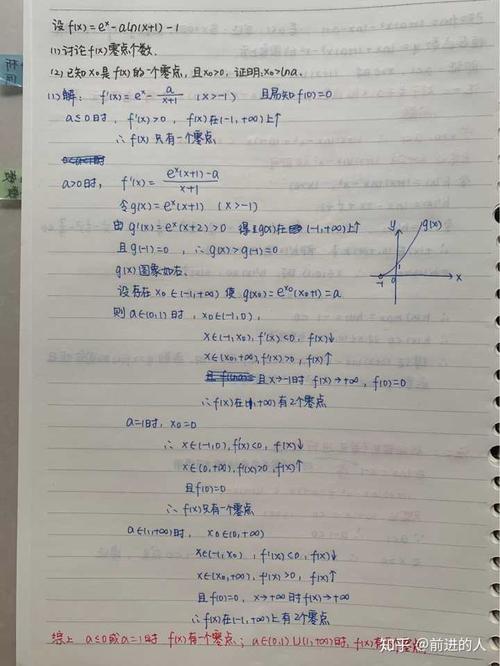 设f(x)=eˣ-aln(x+1)-1
(1)讨论f(x)零点个数.
(2)已知x₀是f(x)的一个零点,且x₀>0,证明:x₀>lna.
(1)解: f'(x)=eˣ-a/(x+1) (x>-1) 且易知f(0)=0
a≤0时, f'(x)>0, f(x)在(-1,+∞)上↑
∴f(x)只有一个零点
a>0时, f'(x)=(eˣ(x+1)-a)/(x+1)
令g(x)=eˣ(x+1) (x>-1)
由g'(x)=eˣ(x+2)>0 得g(x)在(-1,+∞)上↑
且g(-1)=0, ∴g(x)>g(-1)=0
g(x)图象如右:
y g(x)
1
-1 0 x
设存在x₀∈(-1,+∞)使g(x₀)=e^x₀(x₀+1)=a
则a∈(0,1)时, x₀∈(-1,0),
x∈(-1,x₀), f'(x)<0, f(x)↓
x∈(x₀,+∞), f'(x)>0, f(x)↑
且x→-1时 f(x)→+∞, f(0)=0
∴f(x)在(-1,+∞)有2个零点
a=1时, x₀=0
∴x∈(-1,0), f'(x)<0, f(x)↓
x∈(0,+∞), f'(x)>0, f(x)↑
且f(0)=0
∴f(x)只有一个零点
a∈(1,+∞)时, x₀∈(0,+∞)
x∈(-1,x₀), f'(x)<0, f(x)↓
x∈(x₀,+∞), f'(x)>0, f(x)↑
且f(0)=0, x→+∞时f(x)→+∞
∴f(x)在(-1,+∞)上有2个零点
综上 a≤0或a=1时 f(x)有一个零点; a∈(0,1)∪(1,+∞)时, f(x)有零点
知乎 @前进的人